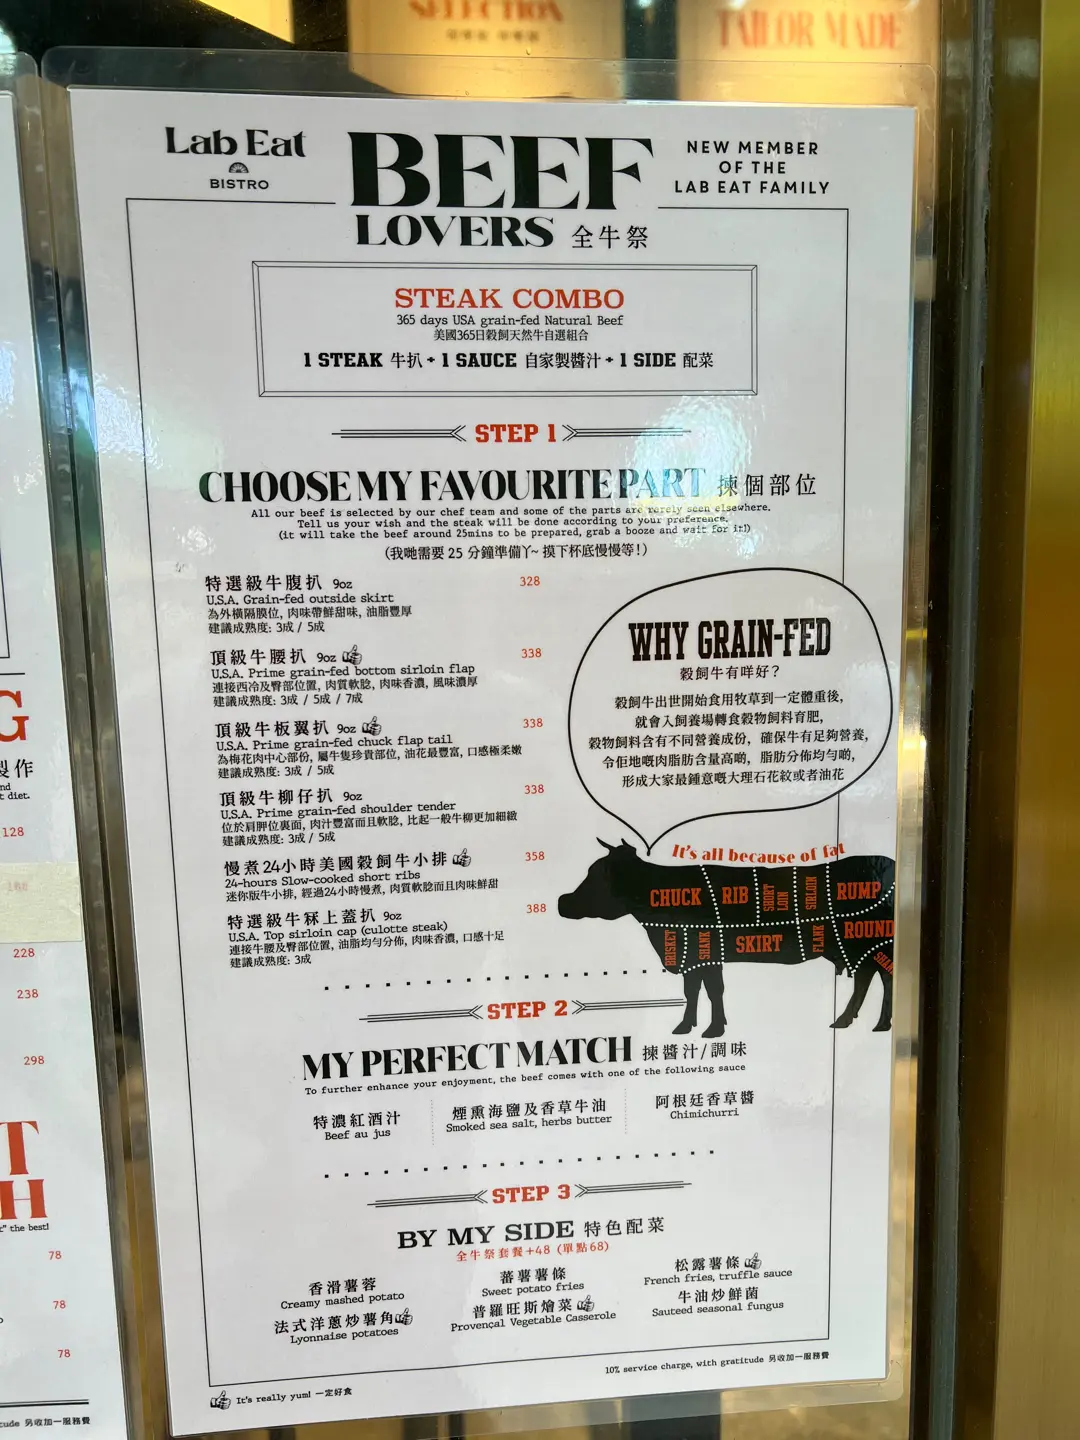 SELECTION
TAILOR MADE
Lab Eat
BISTRO
BEEF
LOVERS 全牛祭
NEW MEMBER
OF THE
LAB EAT FAMILY
STEAK COMBO
365 days USA grain-fed Natural Beef
美國365日穀飼天然牛自選組合
1 STEAK 牛扒 + 1 SAUCE 自家製醬汁 + 1 SIDE 配菜
STEP 1
CHOOSE MY FAVOURITE PART 揀個部位
All our beef is selected by our chef team and some of the parts are rarely seen elsewhere.
Tell us your wish and the steak will be done according to your preference.
(it will take the beef around 25mins to be prepared, grab a booze and wait for it!)
(我哋需要 25 分鐘準備丫~ 摸下杯底慢慢等!)
特選級牛腹扒 9oz 328
U.S.A. Grain-fed outside skirt
為外橫隔膜位, 肉味帶鮮甜味, 油脂豐厚
建議成熟度: 3成 / 5成
頂級牛腰扒 9oz 338
U.S.A. Prime grain-fed bottom sirloin flap
連接西冷及臀部位置, 肉質軟腍, 肉味香濃, 風味濃厚
建議成熟度: 3成 / 5成 / 7成
頂級牛板翼扒 9oz 338
U.S.A. Prime grain-fed chuck flap tail
為梅花肉中心部份, 屬牛隻珍貴部位, 油花最豐富, 口感極柔嫩
建議成熟度: 3成 / 5成
頂級牛柳仔扒 9oz 338
U.S.A. Prime grain-fed shoulder tender
位於肩胛位裏面, 肉汁豐富而且軟腍, 比起一般牛柳更加細緻
建議成熟度: 3成 / 5成
慢煮24小時美國穀飼牛小排 358
24-hours Slow-cooked short ribs
迷你版牛小排, 經過24小時慢煮, 肉質軟腍而且肉味鮮甜
特選級牛冧上蓋扒 9oz 388
U.S.A. Top sirloin cap (culotte steak)
連接牛腰及臀部位置, 油脂均勻分佈, 肉味香濃, 口感十足
建議成熟度: 3成
WHY GRAIN-FED
穀飼牛有咩好?
穀飼牛出世開始食用牧草到一定體重後,
就會入飼養場轉食穀物飼料育肥,
穀物飼料含有不同營養成份, 確保牛有足夠營養,
令佢地嘅肉脂肪含量高啲, 脂肪分佈均勻啲,
形成大家最鍾意嘅大理石花紋或者油花
It's all because of fat
CHUCK
RIB
SHORT
LOIN
SIRLOIN
RUMP
BRISKET
SHANK
SKIRT
FLANK
ROUND
SHANK
STEP 2
MY PERFECT MATCH 揀醬汁/調味
To further enhance your enjoyment, the beef comes with one of the following sauce
特濃紅酒汁
Beef au jus
煙熏海鹽及香草牛油
Smoked sea salt, herbs butter
阿根廷香草醬
Chimichurri
STEP 3
BY MY SIDE 特色配菜
全牛祭套餐+48 (單點68)
香滑薯蓉
Creamy mashed potato
蕃薯薯條
Sweet potato fries
松露薯條
French fries, truffle sauce
法式洋蔥炒薯角
Lyonnaise potatoes
普羅旺斯燴菜
Provençal Vegetable Casserole
牛油炒鮮菌
Sauteed seasonal fungus
It's really yum! 一定好食
10% service charge, with gratitude 另收加一服務費
G
製作
nd
t diet.
128
228
238
298
T
H
" the best!
78
78
78
tude 另收加一服務費